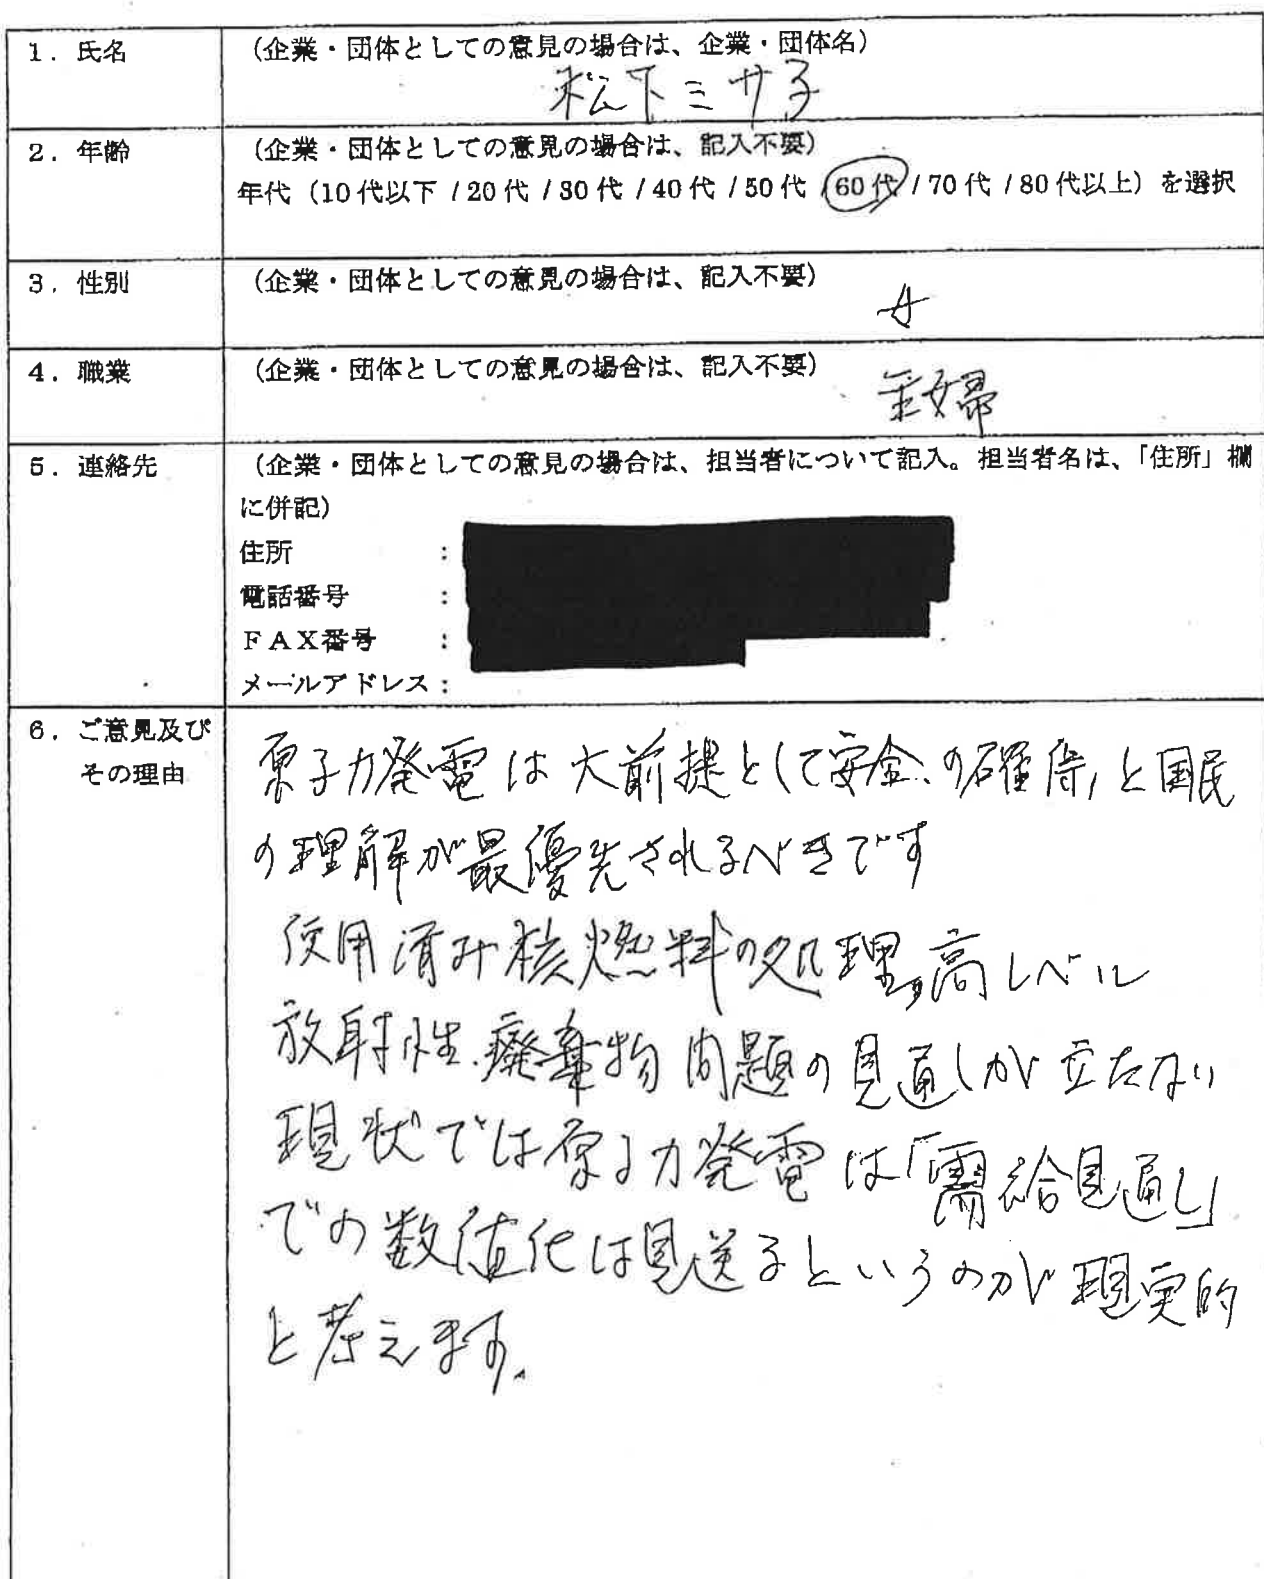 1. 氏名
(企業・団体としての意見の場合は、企業・団体名)
松下ミサ子
2. 年齢
(企業・団体としての意見の場合は、記入不要)
年代(10代以下 / 20代 / 30代 / 40代 / 50代 / 60代 / 70代 / 80代以上)を選択
3. 性別
(企業・団体としての意見の場合は、記入不要)
女
4. 職業
(企業・団体としての意見の場合は、記入不要)
主婦
5. 連絡先
(企業・団体としての意見の場合は、担当者について記入。担当者名は、「住所」欄
に併記)
住所 :
電話番号 :
FAX番号 :
メールアドレス:
6. ご意見及び
その理由
原子力発電は大前提として安全の確保と国民
の理解が最優先されるべきです
使用済み核燃料の処理,高レベル
放射性廃棄物問題の見通しが立たない
現状では原子力発電は「需給見通し」
での数値化は見送るというのが現実的
と考えます。